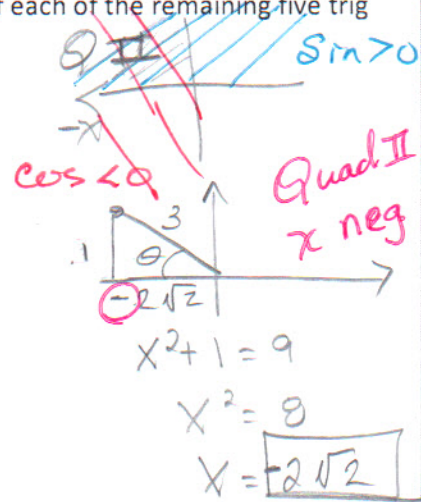 f each of the remaining five trig
Q II
Sin>0
-x
cos<0
Quad II
x neg
3
1
θ
-2√2
x²+1=9
x²=8
x=-2√2